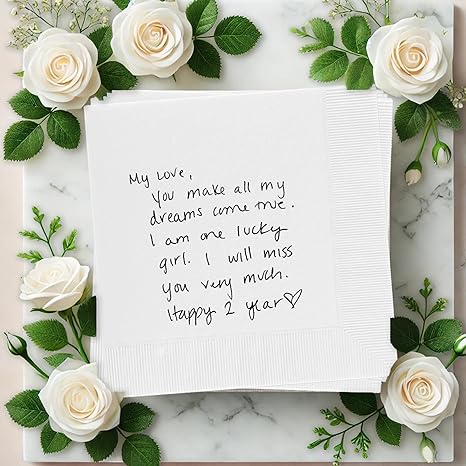 My Love,
You make all my
dreams come true.
I am one lucky
girl. I will miss
you very much.
Happy 2 year♡